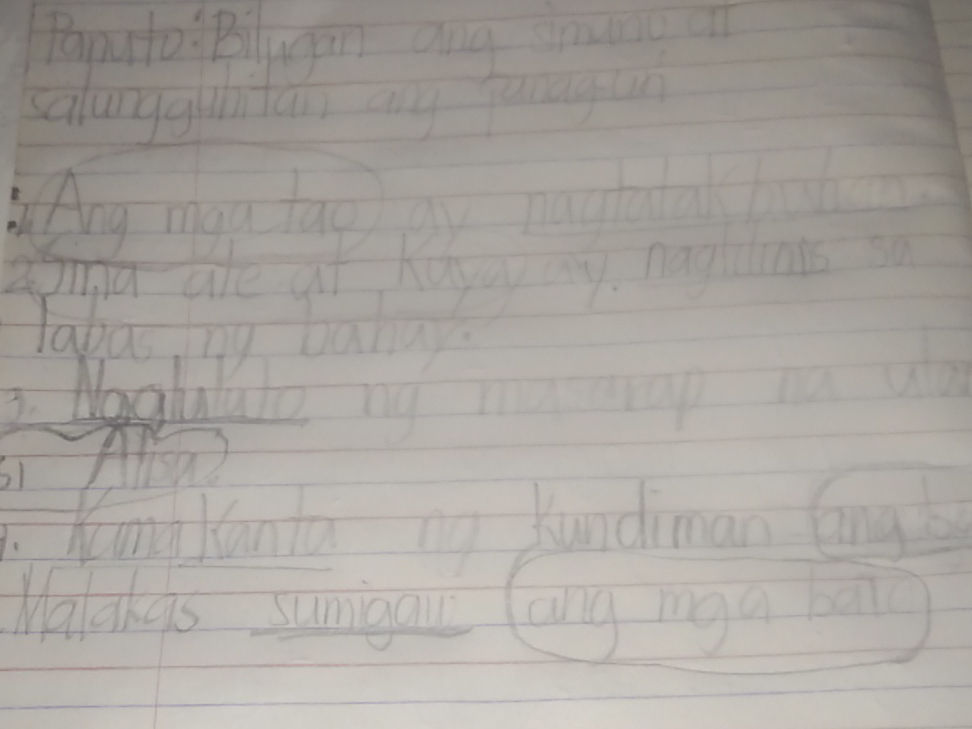 Panuto: Bilugan ang simuno at
salungguhitan ang panaguri
1. Ang mga tao ay nagtatakbuhan.
2. Sina ate at Kuya ay naglilinis sa
labas ng bahay.
3. Nagluluto ng masarap na
si Alisa.
Kumakanta ng Kundiman ang
Malakas sumigaw ang mga bata